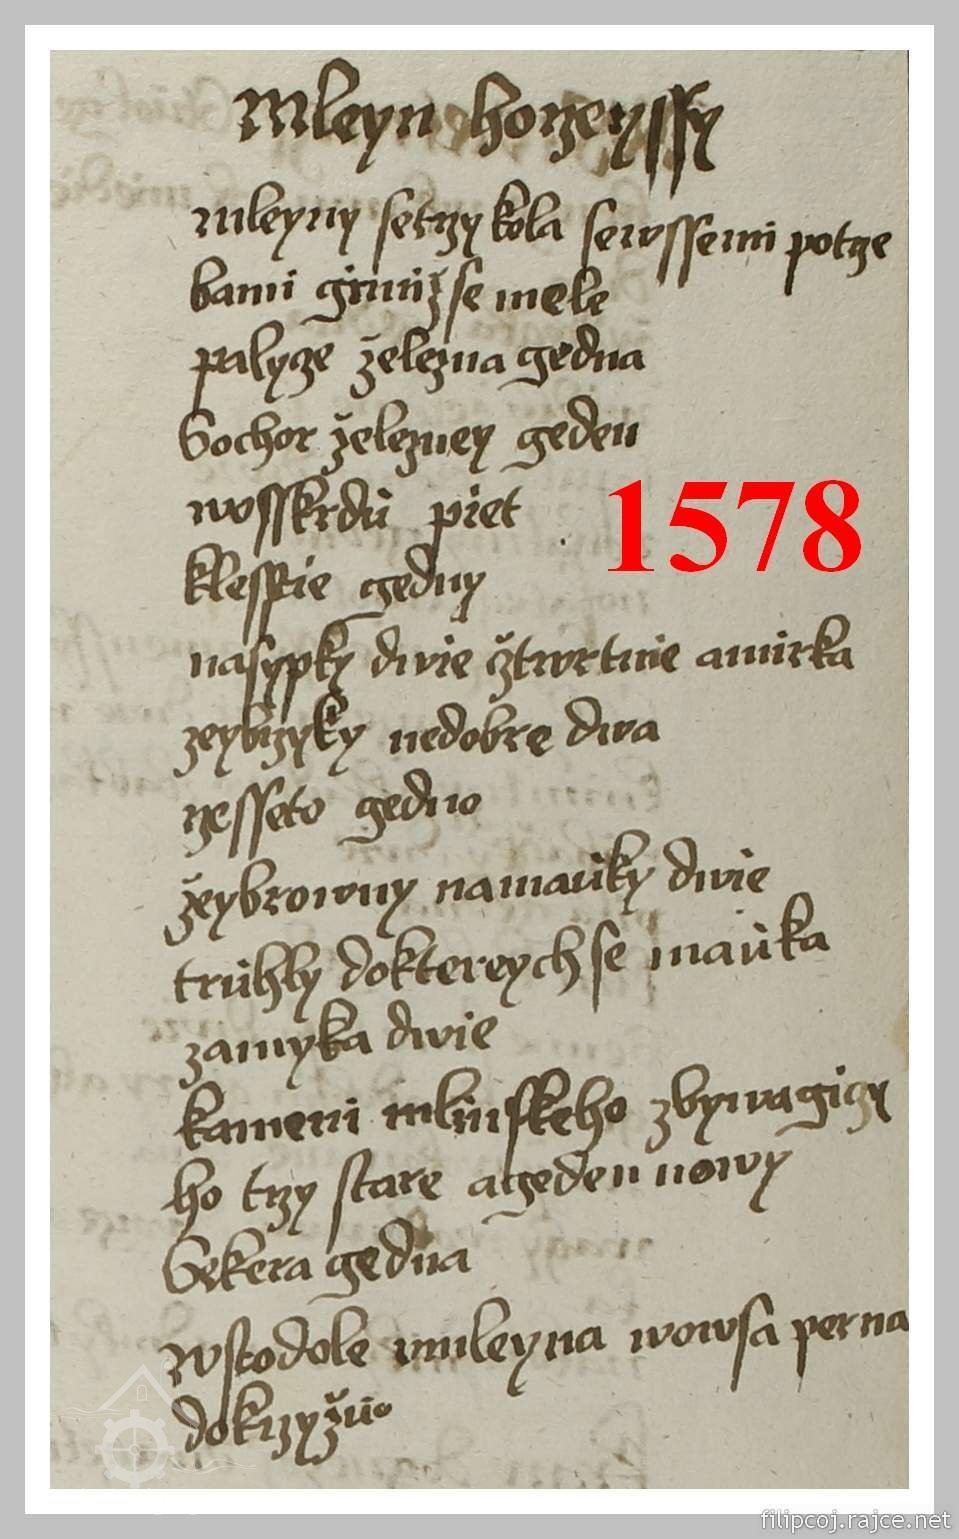 mleyn horzeyssy
mleyny setrzy kola sewssemi potrze
bami gimiž se mele
palyze železna gedna
Sochor železney geden
wosskrdů piet
klesstie gedny
nasypky dwie čtwrtnie amirka
zeybrzyky nedobre dwa
rzesseto gedno
žeybrowny namauky dwie
truhly doktereych se mauka
zamyka dwie
kameni mlinskeho zbywagiczy
ho trzy stare ageden nowy
Sekera gedna
wstodole umleyna wowsa perna
dokrzyžuo
1578
filipcoj.rajce.net